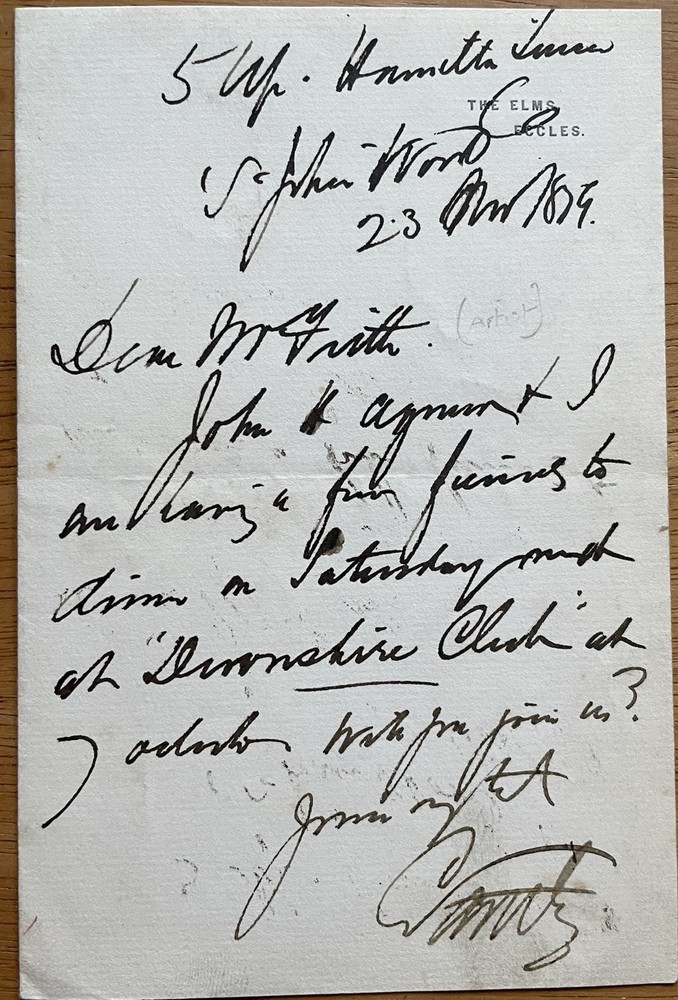 5 Up. Hamilton Terrace
THE ELMS,
ECCLES.
St John's Wood
23 Nov 1879.
Dear Mr Frith. (Artist)
John H Agnew & I
are having a few friends to
dinner on Saturday next
at "Devonshire Club" at
7 oclock. Will you join us?
Yours